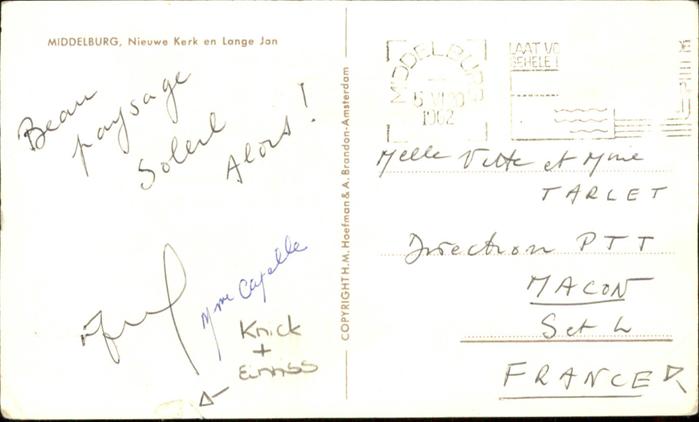 MIDDELBURG, Nieuwe Kerk en Lange Jan
Beau
paysage
Soleil
Alors !
Mme Capelle
Knick
+
COPYRIGHT H.M. Hoefman & A. Brandon-Amsterdam
MIDDELBURG
1962
LAAT
GEHELE
Melle Vitte et Mme
TARLET
Direction PTT
MACON
S et L
FRANCE